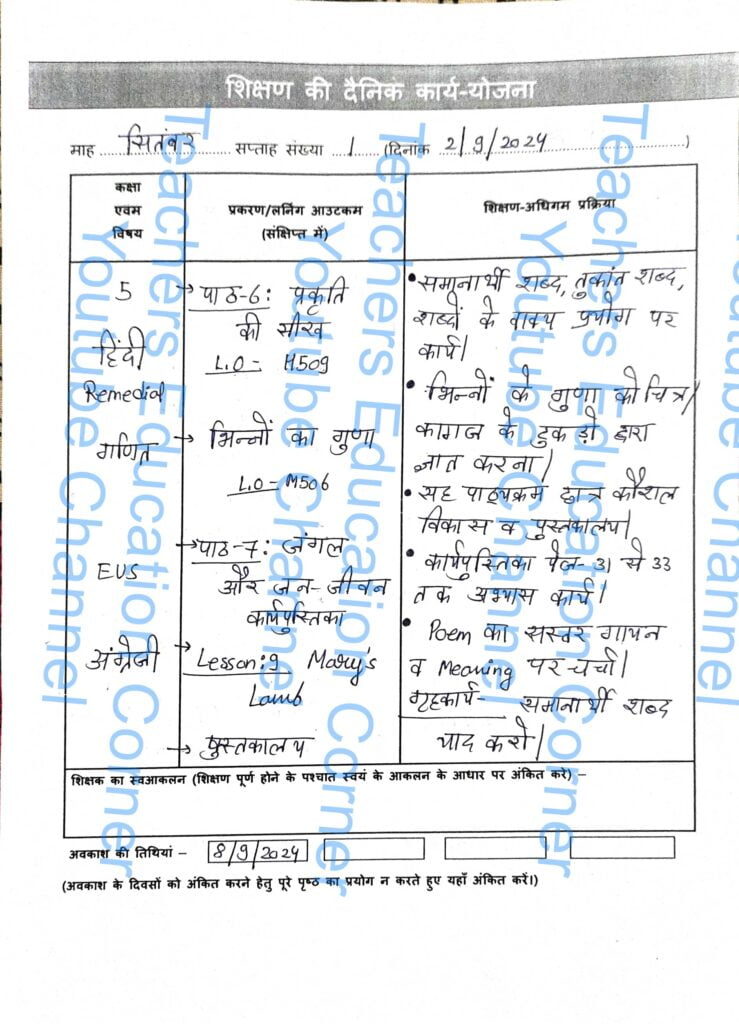 शिक्षण की दैनिक कार्य-योजना
माह सितंबर सप्ताह संख्या 1 (दिनांक 2/9/2024)
कक्षा
एवम
विषय
प्रकरण/लर्निंग आउटकम
(संक्षिप्त में)
शिक्षण-अधिगम प्रक्रिया
5
हिंदी
Remedial
गणित
EVS
अंग्रेजी
→ पाठ-6: प्रकृति
की सीख
L.O - H509
→ भिन्नों का गुणा
L.O - M506
→ पाठ-7: जंगल
और जन-जीवन
कार्यपुस्तिका
→ Lesson: 9 Mary's
Lamb
→ पुस्तकालय
• समानार्थी शब्द, तुकांत शब्द,
शब्दों के वाक्य प्रयोग पर
कार्य।
• भिन्नों के गुणा को चित्र/
कागज के टुकड़ो द्वारा
ज्ञात करना।
• सह पाठ्यक्रम छात्र कौशल
विकास व पुस्तकालय।
• कार्यपुस्तिका पेज- 31 से 33
तक अभ्यास कार्य।
• Poem का सस्वर गायन
व Meaning पर चर्चा।
गृहकार्य- समानार्थी शब्द
याद करो।
शिक्षक का स्वआकलन (शिक्षण पूर्ण होने के पश्चात स्वयं के आकलन के आधार पर अंकित करें) -
अवकाश की तिथियां - 8/9/2024
(अवकाश के दिवसों को अंकित करने हेतु पूरे पृष्ठ का प्रयोग न करते हुए यहाँ अंकित करें।)
Teachers Education Corner
Youtube Channel
Teachers Education Corner
Youtube Channel
Teachers Education Corner
Youtube Channel